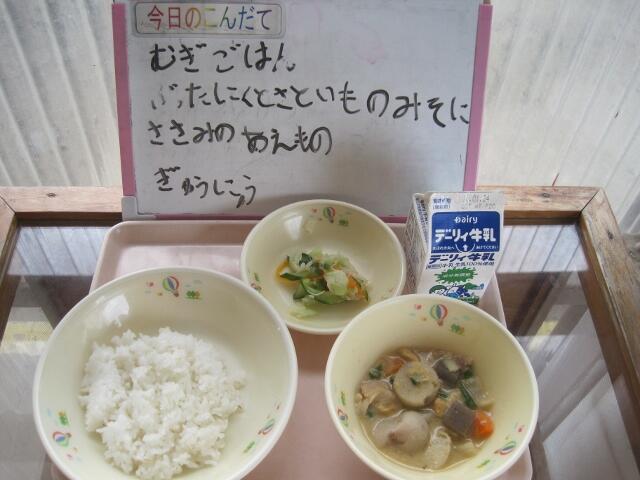 今日のこんだて
むぎごはん
ぶたにくとさといものみそに
ささみのあえもの
ぎゅうにゅう
Dairy
デーリィ牛乳
デーリィ牛乳